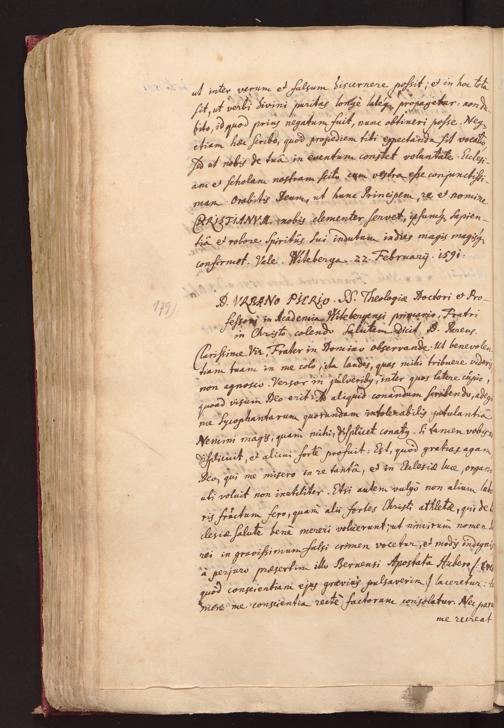 ut inter verum et falsum discernere possit; et in hoc tota
sit, ut verbi divini puritas longè latèq, propagetur. non d
bito, id quod prius negatum fuit, nunc obtineri posse. Neq,
etiam hæc scribo, quod propediem tibi expectanda sit vocatio
sed ut nobis de tuâ in eventum constet voluntate. Ecclesi-
am et scholam nostram scito cum vestra esse conjunctissi-
mam. Orabitis Deum, ut hunc Principem, re et nomine
CHRISTIANUM nobis clementer servet, ipsumq, sapien-
tiâ et robore Spiritûs sui indutum indies magis magisq,
confirmet. Vale. Witeberga. 22. Februarij. 1591.
D. URBANO PIERIO. SS. Theologiæ Doctori et Pro-
fessori in Academia Witebergensi primario, Fratri
in Christo colendo Salutem dicit D. Pareus.
Clarissime Vir, Frater in Domino observande. Ut benevolen-
tiam tuam in me colo, ita laudes, quas mihi tribuere videris
non agnosco. Versor in pulveribq, inter quos latere cupio,
quoad visum Deo erit. Ad aliquid conandum scribendo, adegit
me Sycophantarum quorundam intolerabilis petulantia.
Nemini magis, quam mihi, displicet conatq. Si tamen vobis
displicuit, et alicui forte profuit: Est, quod gratias agam
Deo, qui me misero in re tantâ, et in Ecclesiæ luce, organo
uti voluit non inutiliter. Etsi autem vulgò non alium labo-
ris fructum fero, quam alii fortes Christi athletæ, qui de E
clesiæ salute benè mereri voluerunt; ut nimirum nomen
rei in gravissimum falsi crimen vocetur, et modis indignis
à perjuro præsertim illo Bernensi Apostata Hubero /
quod conscientiam ejus gravius pulsaverim / laceretur:
more me conscientia rectè factorum consolatur. Nec
me recreat